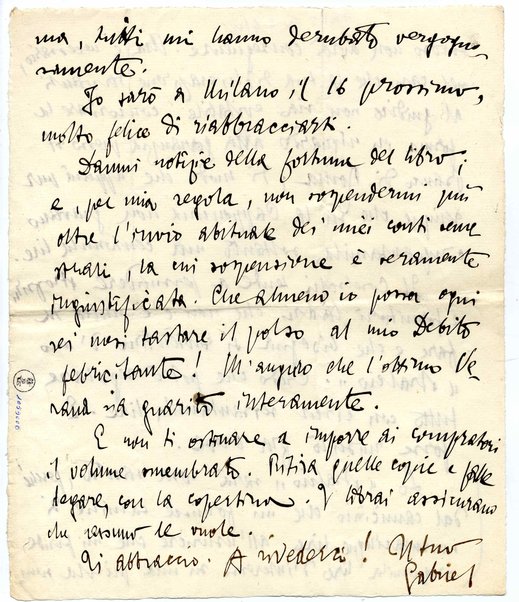 ma, tutti mi hanno derubato vergogno-
samente.
Io sarò a Milano, il 16 prossimo,
molto felice di riabbracciarti.
Dammi notizie della fortuna del libro;
e, per mia regola, non sospendermi più
oltre l'invio abituale dei miei conti seme
strali, la cui sospensione è veramente
ingiustificata. Che almeno io possa ogni
sei mesi tastare il polso al mio Debito
febricitante! M'auguro che l'ottimo Ve
rana sia guarito interamente.
E non ti ostinare a imporre ai compratori
il volume smembrato. Ritira quelle copie e falle
legare, con la copertina. I librai assicurano
che nessuno le vuole.
Ti abbraccio. A rivederci! Il tuo
Gabriel